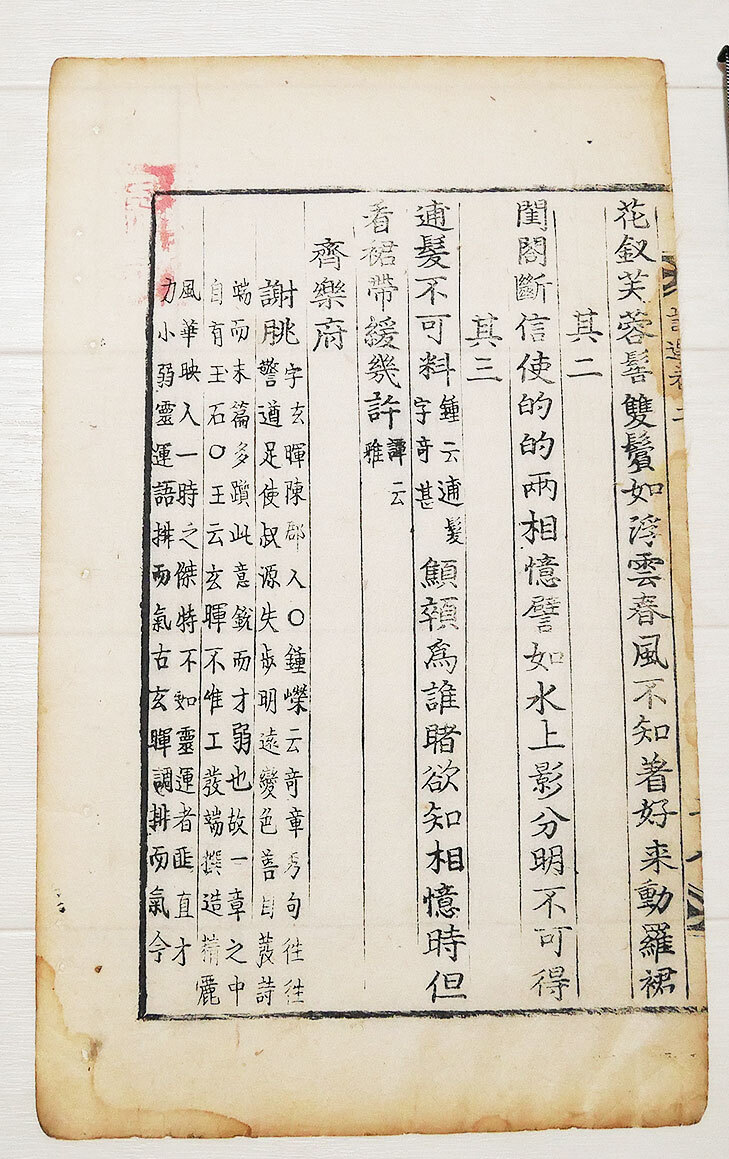 花釵芙蓉髻雙鬢如浮雲春風不知著好来動羅裙
其二
閨閣斷信使的的兩相憶譬如水上影分明不可得
其三
逋髮不可料鍾云逋髮字奇甚顦顇為誰睹欲知相憶時但
看裙帶緩幾許譚云雅
齊樂府
謝朓字玄暉陳郡人○鍾嶸云奇章秀句往往
警遒足使叔源失歩明遠變色善自發詩
端而末篇多躓此意銳而才弱也故一章之中
自有王石○王云玄暉不惟工發端撰造精麗
風華映人一時之傑特不如靈運者匪直才
力小弱靈運語排而氣古玄暉調排而氣今